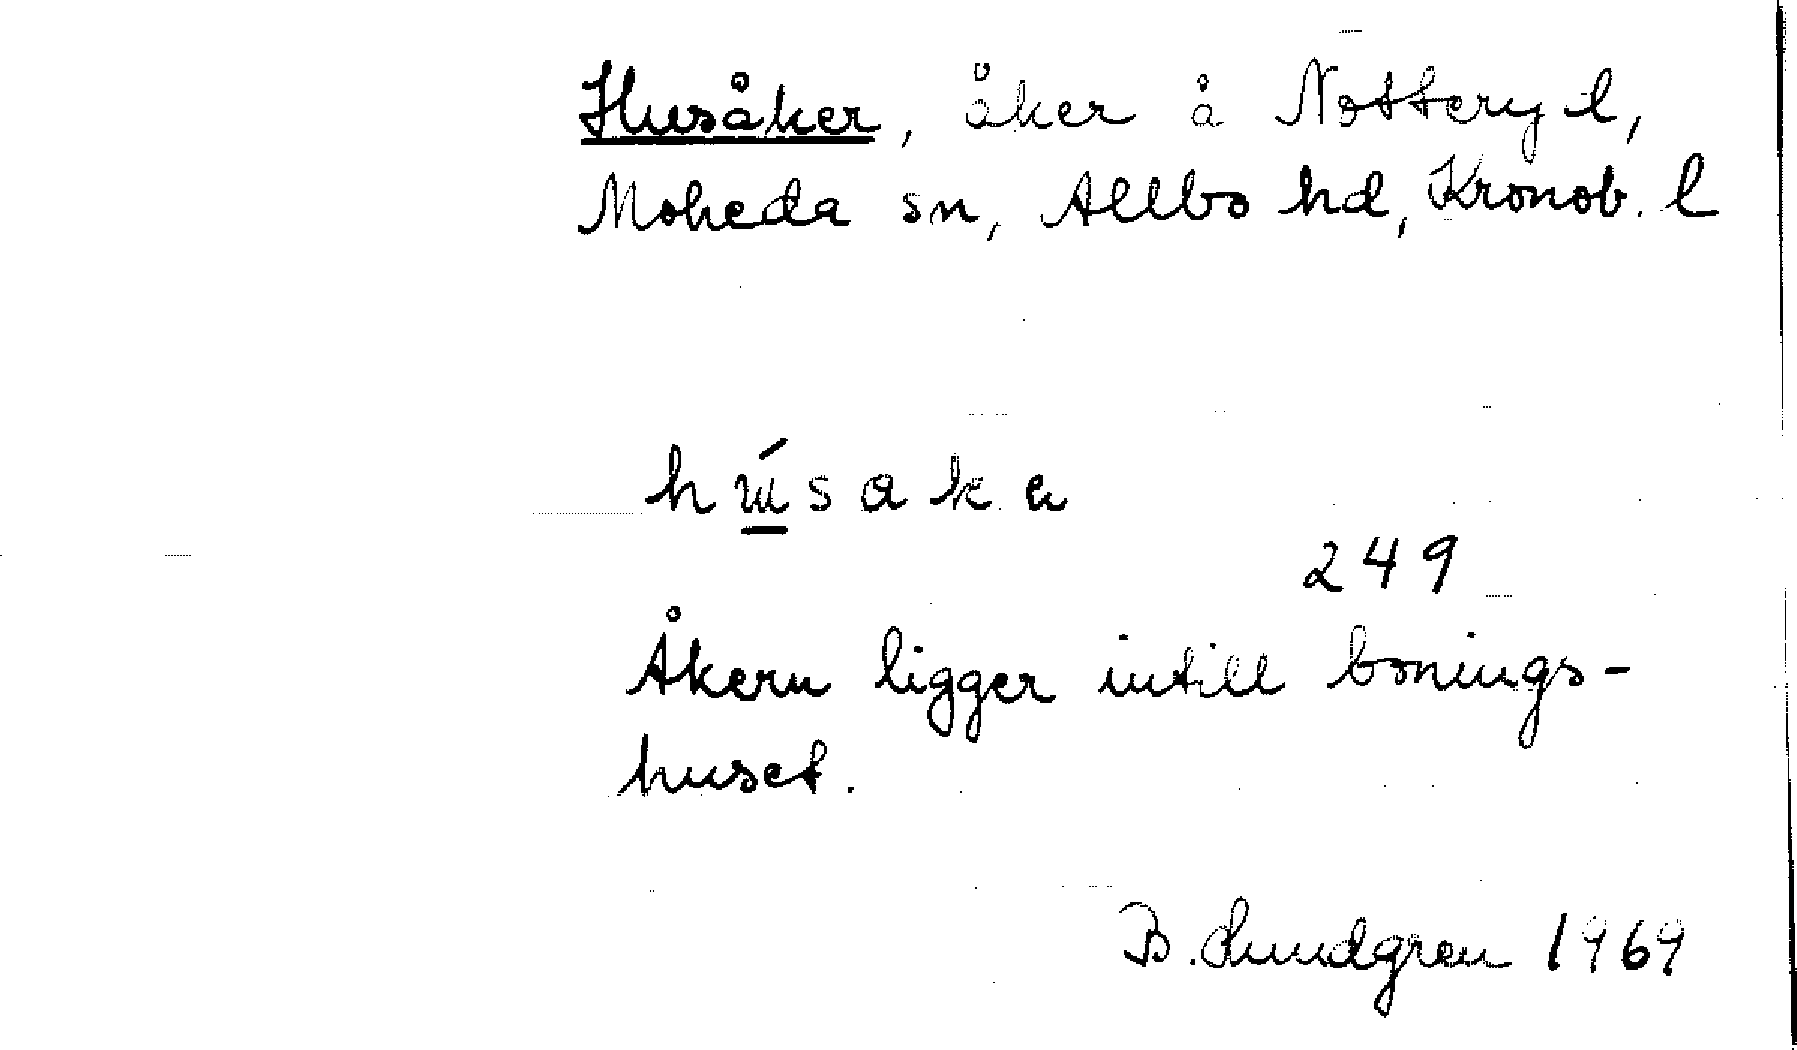 Husåker, åker å Notteryd,
Moheda sn, Allbo hd, Kronob. l
249
Åkern ligger intill bonings-
huset.
B. Lundgren 1969